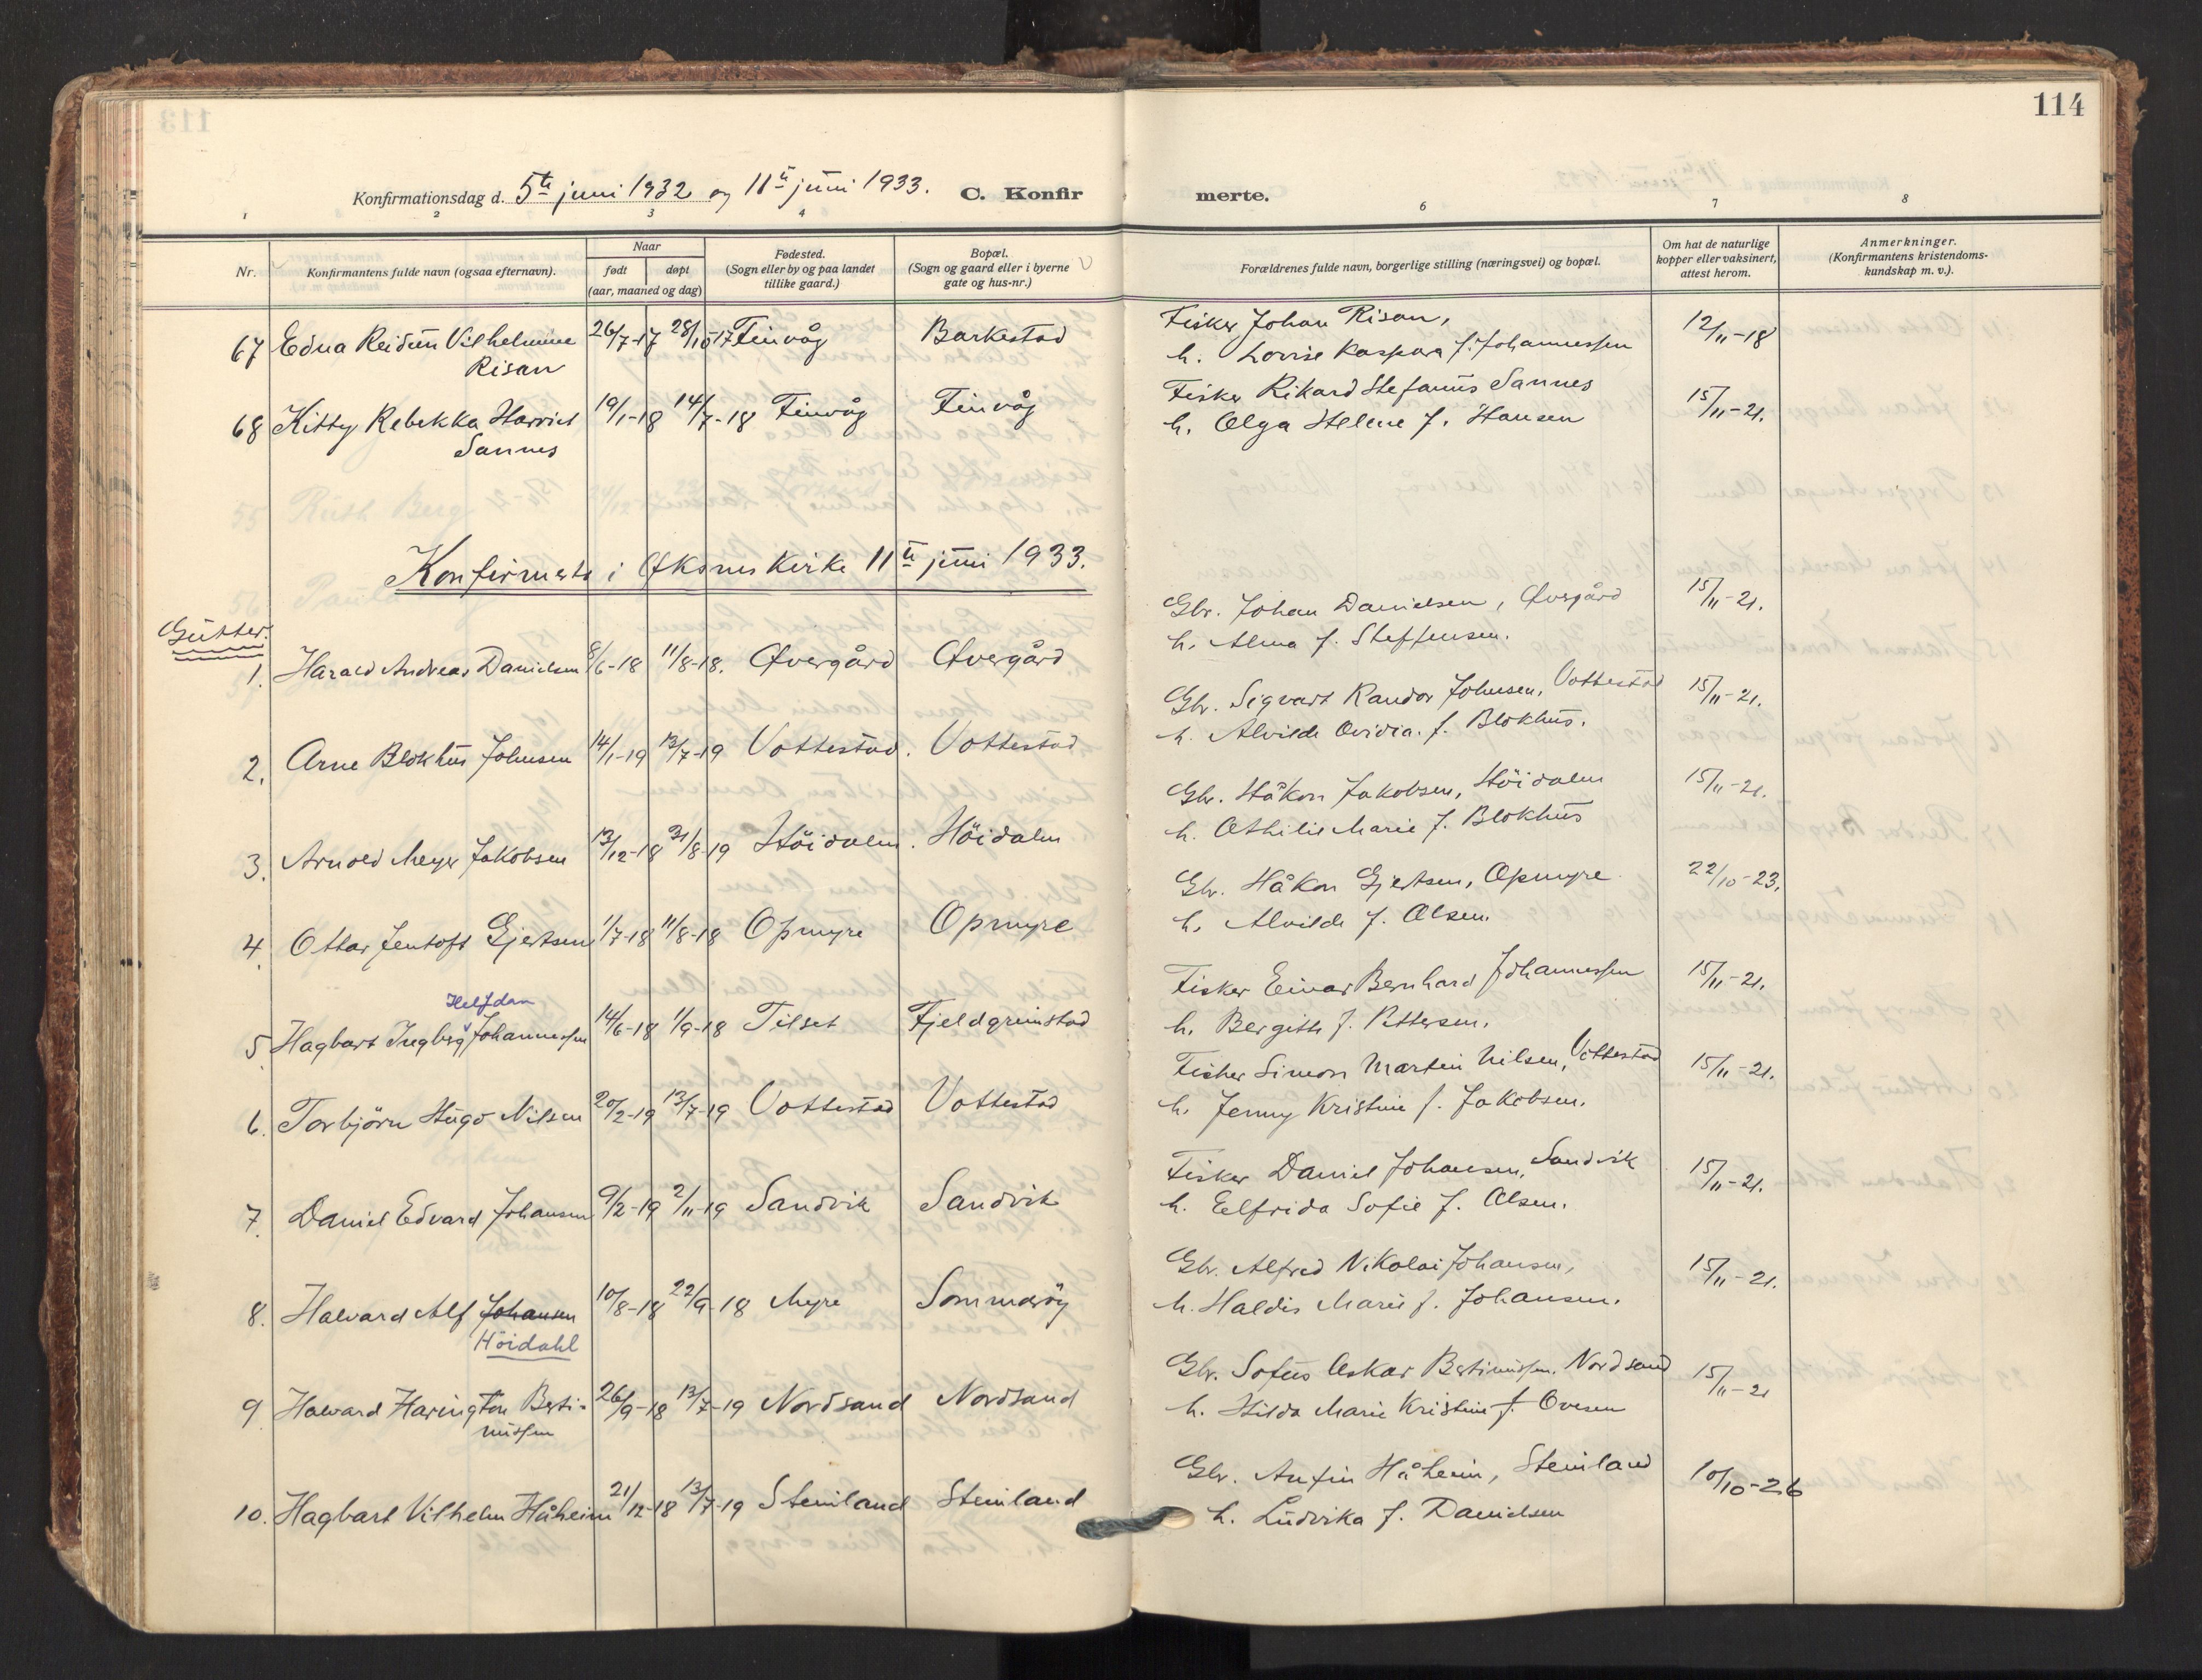 114
Konfirmationsdag d. 5te juni 1932 og 11te juni 1933. C. Konfirmerte.
1 2 3 4 6 7 8
Nr. Konfirmantens fulde navn (ogsaa efternavn). Naar født døpt (aar, maaned og dag) Fødested. (Sogn eller by og paa landet tillike gaard.) Bopæl. (Sogn og gaard eller i byerne gate og hus-nr.) Forældrenes fulde navn, borgerlige stilling (næringsvei) og bopæl. Om hat de naturlige kopper eller vaksinert, attest herom. Anmerkninger. (Konfirmantens kristendoms-kundskap m. v.).
67 Edna Reidun Vilhelmine 26/7-17 28/10-17 Finvåg Barkestad Fisker Johan Risan, 12/11-18
Risan h. Lovise Kaspara f. Johannessen
68 Kitty Rebekka Harriet 19/1-18 14/7-18 Finvåg Finvåg Fisker Rikard Stefanus Sannes 15/11-21.
Sannes h. Olga Helene f. Hansen
Konfirmerte i Øksnes Kirke 11te juni 1933.
Gutter.
1. Harald Andreas Danielsen 8/6-18 11/8-18. Øvergård Øvergård Gbr. Johan Danielsen, Øvergård 15/11-21.
h. Alma f. Steffensen.
2. Arne Blokhus Johnsen 14/1-19 13/7-19 Vottestad. Vottestad Gbr. Sigvart Randor Johnsen, Vottestad 15/11-21.
h. Alvilde Ovidia. f. Blokhus.
3. Arnold Meyer Jakobsen 13/12-18 31/8-19 Höidalen. Höidalen Gbr. Håkon Jakobsen, Höidalen 15/11-21.
h. Othilie Marie f. Blokhus
4. Ottar Jentoft Gjertsen 1/7-18 11/8-18 Opmyre Opmyre Gbr. Håkon Gjertsen, Opmyre 22/10-23.
h. Alvilde f. Olsen.
Helfdan
5 Hagbart Ingberg Johannessen 14/6-18 1/9-18 Tilset Fjeldgrimstad Fisker Einar Bernhard Johannessen 15/11-21.
h. Bergitte f. Pettersen.
6. Torbjörn Hugo Nilsen 20/2-19 13/7-19 Vottestad Vottestad Fisker Simon Martin Nilsen, Vottestad 15/11-21.
h. Jenny Kristine f. Jakobsen.
7. Daniel Edvard Johansen 9/2-19 2/11-19 Sandvik Sandvik Fisker Daniel Johansen, Sandvik 15/11-21.
h. Elfrida Sofie f. Olsen.
8. Halvard Alf Johansen 10/8-18 22/9-18 Myre Sommarøy Gbr. Alfred Nikolai Johansen, 15/11-21.
Höidahl h. Haldis Marie f. Johansen.
9 Halvard Harington Berti- 26/9-18 13/7-19 Nordsand Nordsand Gbr. Sofus Oskar Bertinussen. Nordsand 15/11-21
nussen h. Hilda Marie Kristine f. Ovesen
10. Hagbart Vilhelm Håheim 21/12-18 13/7-19 Steinland Steinland Gbr. Anfin Håheim, Steinland 10/10-26
h. Ludvika f. Danielsen